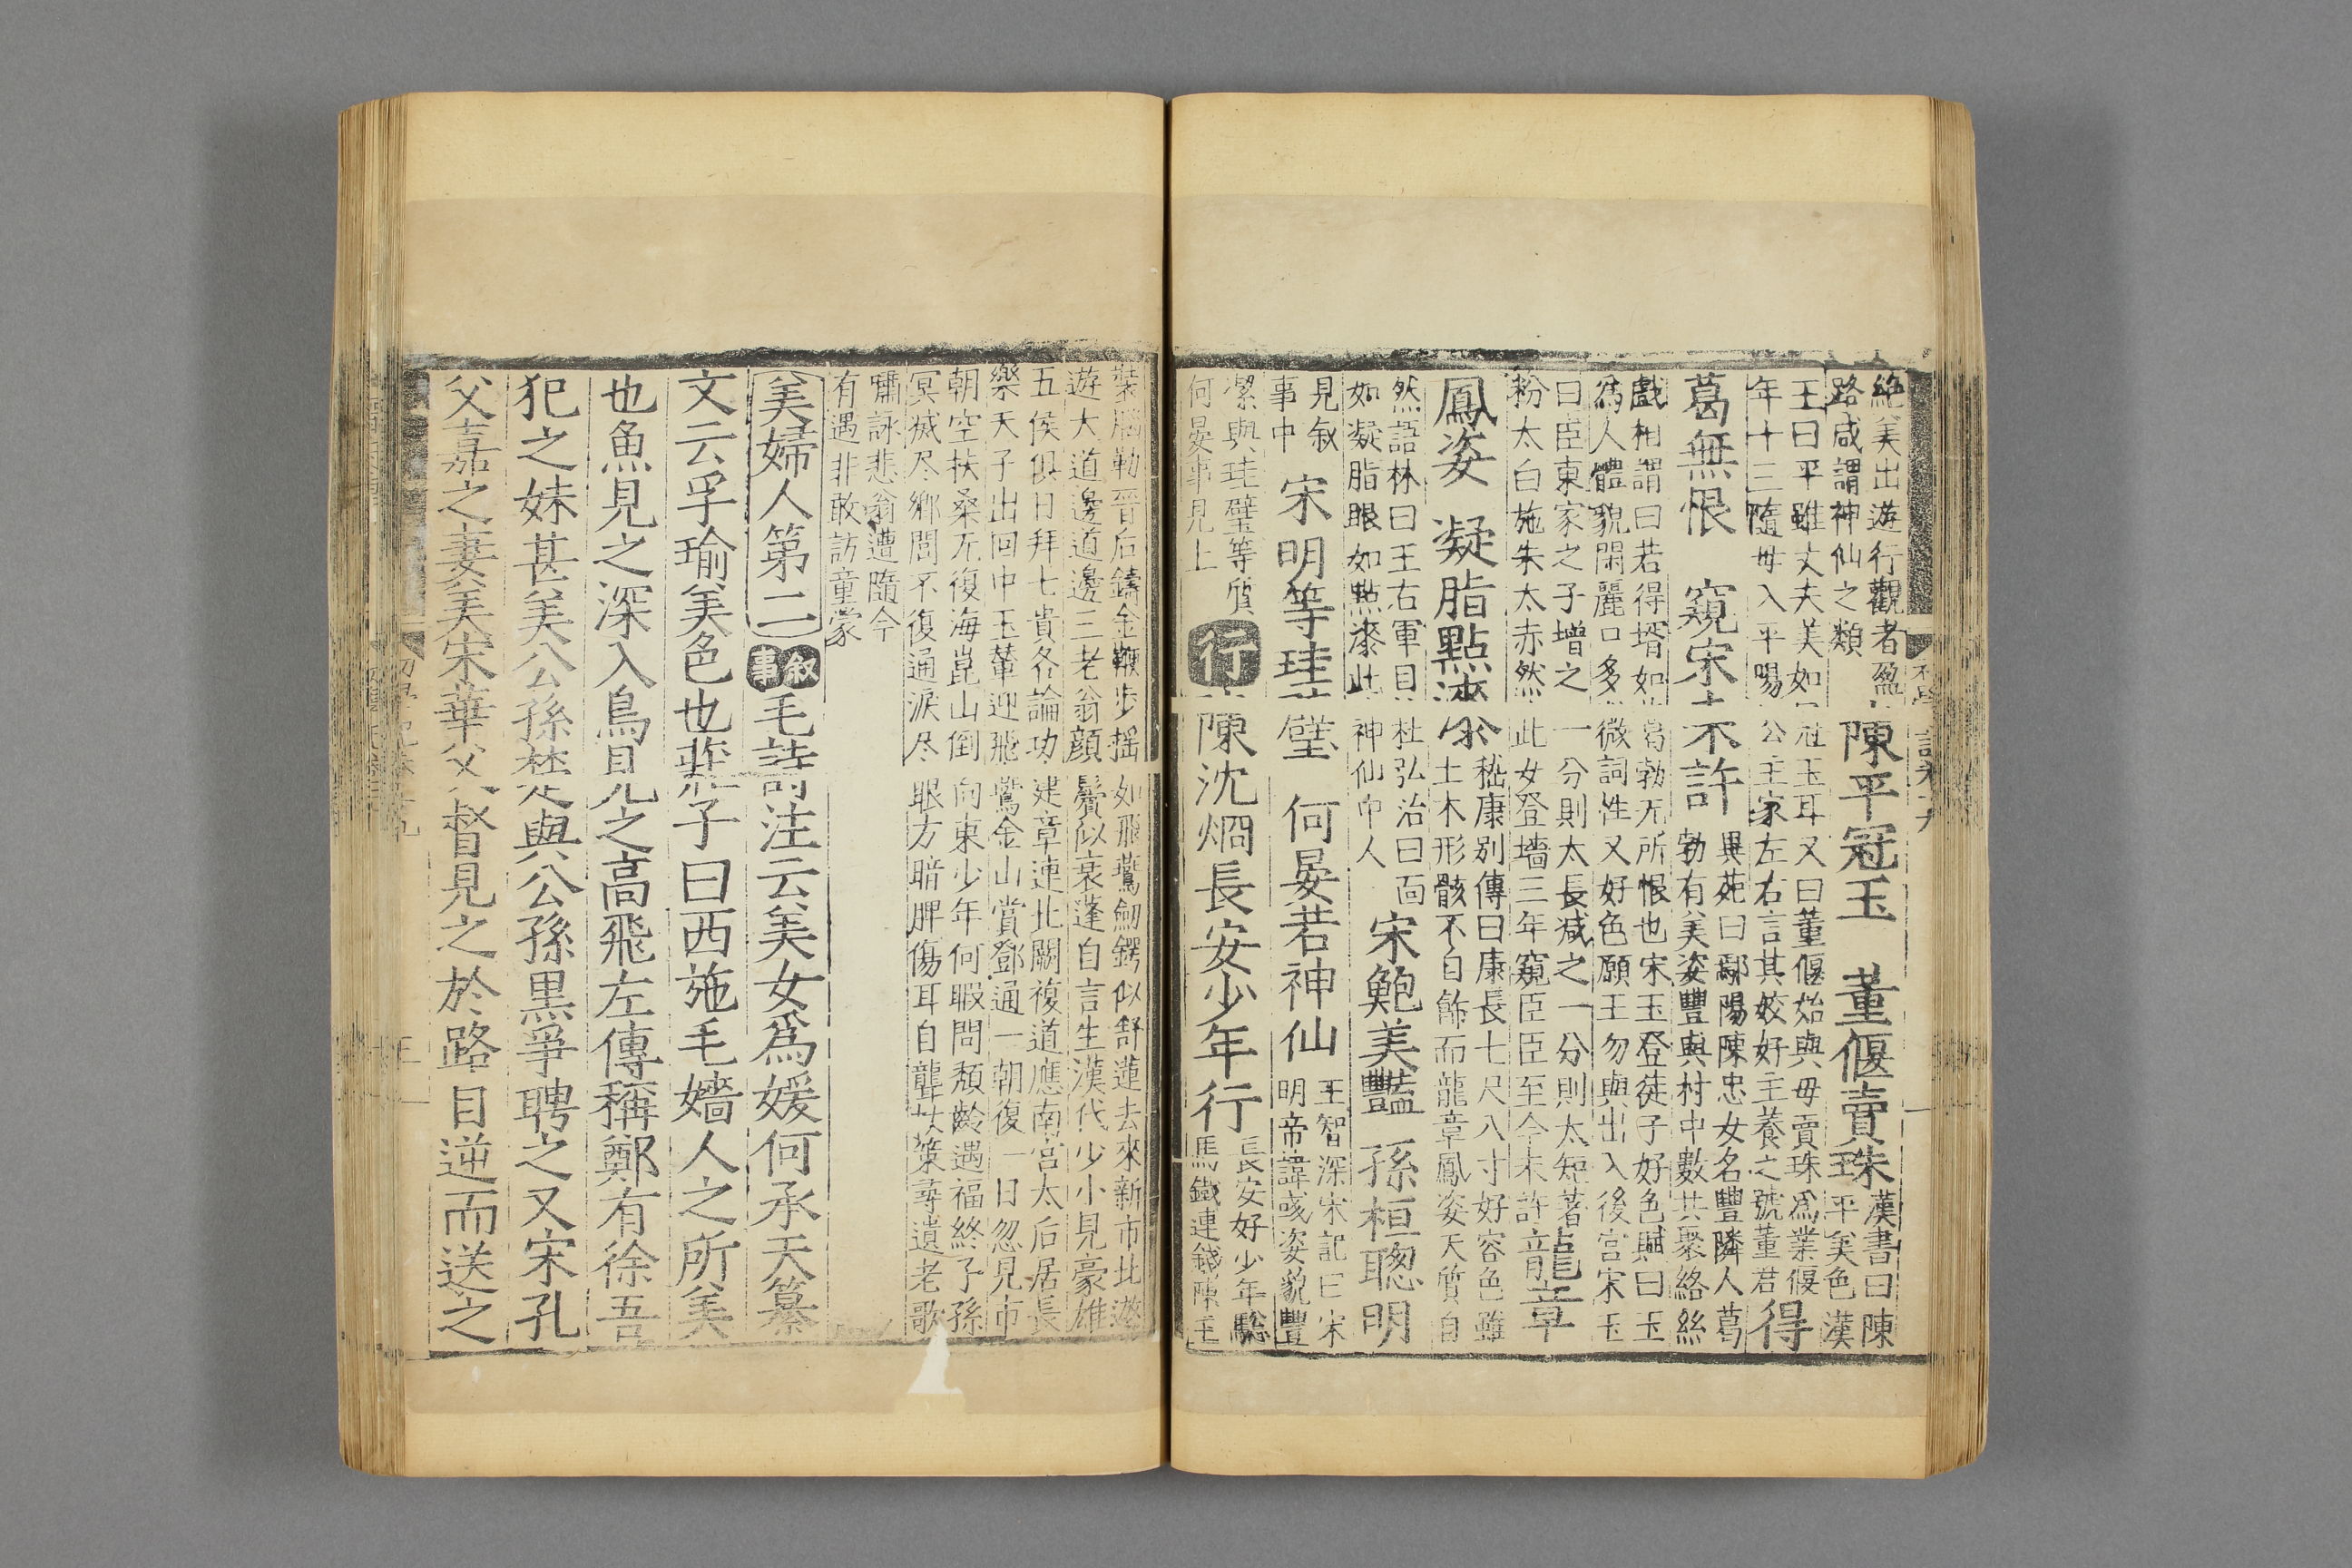 絶美出遊行觀者盈
路咸謂神仙之類
陳平冠玉 董偃賣珠
漢書曰陳
平美色漢
王曰平雖丈夫美如冠玉耳又曰董偃始與母賣珠爲業偃
年十三隨母入平陽公主家左右言其姣好主養之號董君
得
葛無恨 窺宋未許
異苑曰鄢陽陳忠女名豐隣人葛
勃有美姿豐與村中數共聚絡絲
戲相謂曰若得壻如葛勃无所恨也宋玉登徒子好色賦曰玉
爲人體貌閑麗口多微詞性又好色願王勿與出入後宫宋玉
曰臣東家之子增之一分則太長减之一分則太短著
粉太白施朱太赤然此女登墻三年窺臣臣至今未許
龍章
鳳姿 凝脂點漆
嵇康别傳曰康長七尺八寸好容色雖
土木形骸不自餙而龍章鳳姿天質自
然語林曰王右軍目杜弘治曰面
如凝脂眼如點漆此神仙中人
宋鮑美豔 孫桓聰明
見叙
事中
宋明等珪璧 何晏若神仙
王智深宋記曰宋
明帝諱彧姿貌豐
潔與珪璧等質
何晏事見上
行
陳沈烱長安少年行
長安好少年驄
馬鐵連錢陳王
裝腦勒晋后鑄金鞭步摇如飛鷰劒鍔似舒蓮去來新市北遨
遊大道邊道邊三老翁顔鬢似衰蓬自言生漢代少小見豪雄
五侯俱日拜七貴各論功建章連北闕複道應南宫太后居長
樂天子出回中玉輦迎飛鷰金山賞鄧通一朝復一日忽見市
朝空扶桑无復海崑山倒向東少年何暇問頽齡遇福終子孫
冥滅尽鄉閭不復通淚尽眼方暗脾傷耳自聾杖策尋遺老歌
嘯詠悲翁遭隨今
有遇非敢訪童蒙
美婦人第二
叙事
毛詩注云美女爲媛何承天纂
文云孚瑜美色也莊子曰西施毛嬙人之所美
也魚見之深入鳥見之高飛左傳稱鄭有徐吾
犯之妹甚美公孫楚與公孫黒爭聘之又宋孔
父嘉之妻美宋華父督見之於路目逆而送之